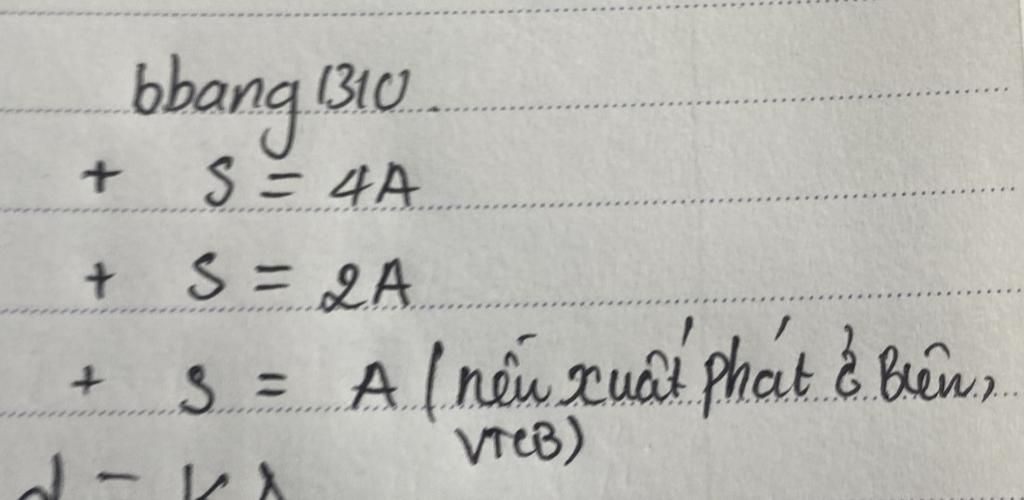 bbang 1310.
+ S = 4A
+ S = 2A
+ S = A (nếu xuất phát ở Biên,
VTCB)